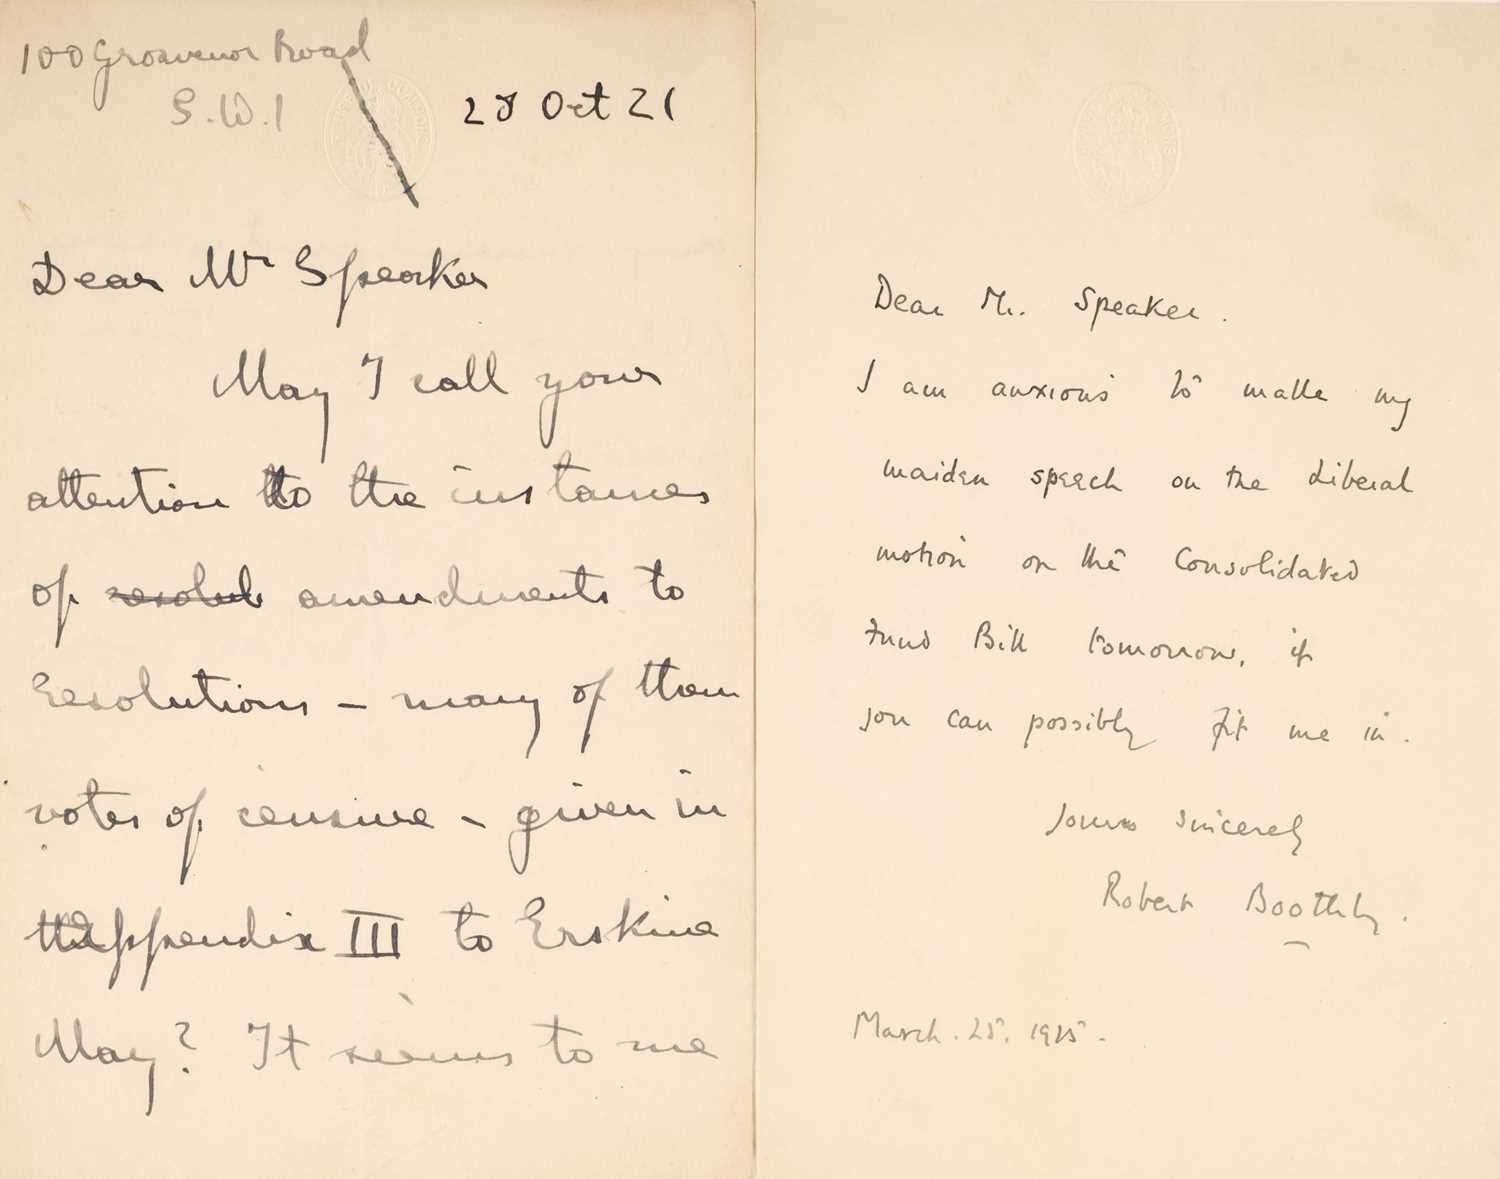 100 Grosvenor Road
S.W.1
28 Oct 21
Dear Mr Speaker
May I call your
attention to the instances
of resolut amendments to
Resolutions – many of them
votes of censure – given in
the Appendix III to Erskine
May? It seems to me
Dear Mr. Speaker.
I am anxious to make my
maiden speech on the Liberal
motion on the Consolidated
Fund Bill tomorrow, if
you can possibly fit me in.
Yours sincerely
Robert Boothby.
March. 25. 1925.